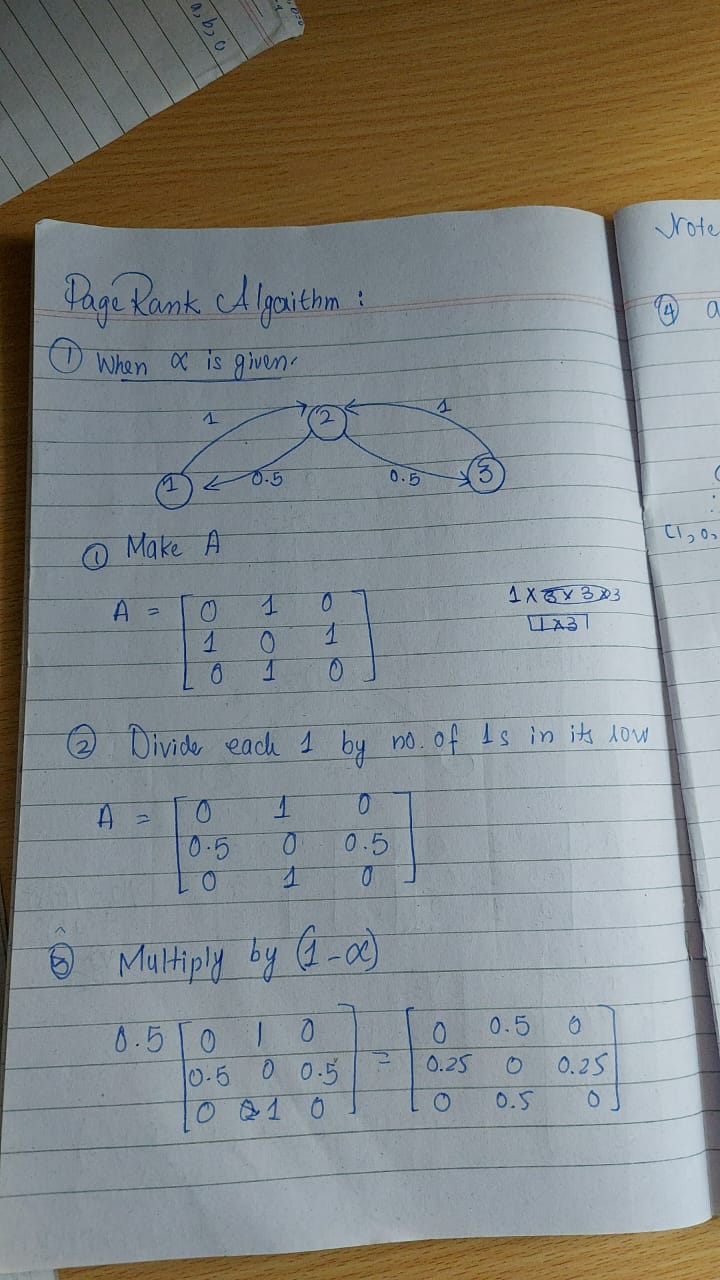 a, b, c
Note
PageRank Algorithm :
④ a
① When α is given.
1 2 1
1 0.5 0.5 3
① Make A
(1, 0,
A = [ 0 1 0
1 0 1
0 1 0 ]
1 X 3 X 3 X 3
1X3
② Divide each 1 by no. of 1s in its row
A = [ 0 1 0
0.5 0 0.5
0 1 0 ]
③ Multiply by (1-α)
0.5 [ 0 1 0
0.5 0 0.5
0 1 0 ] = [ 0 0.5 0
0.25 0 0.25
0 0.5 0 ]